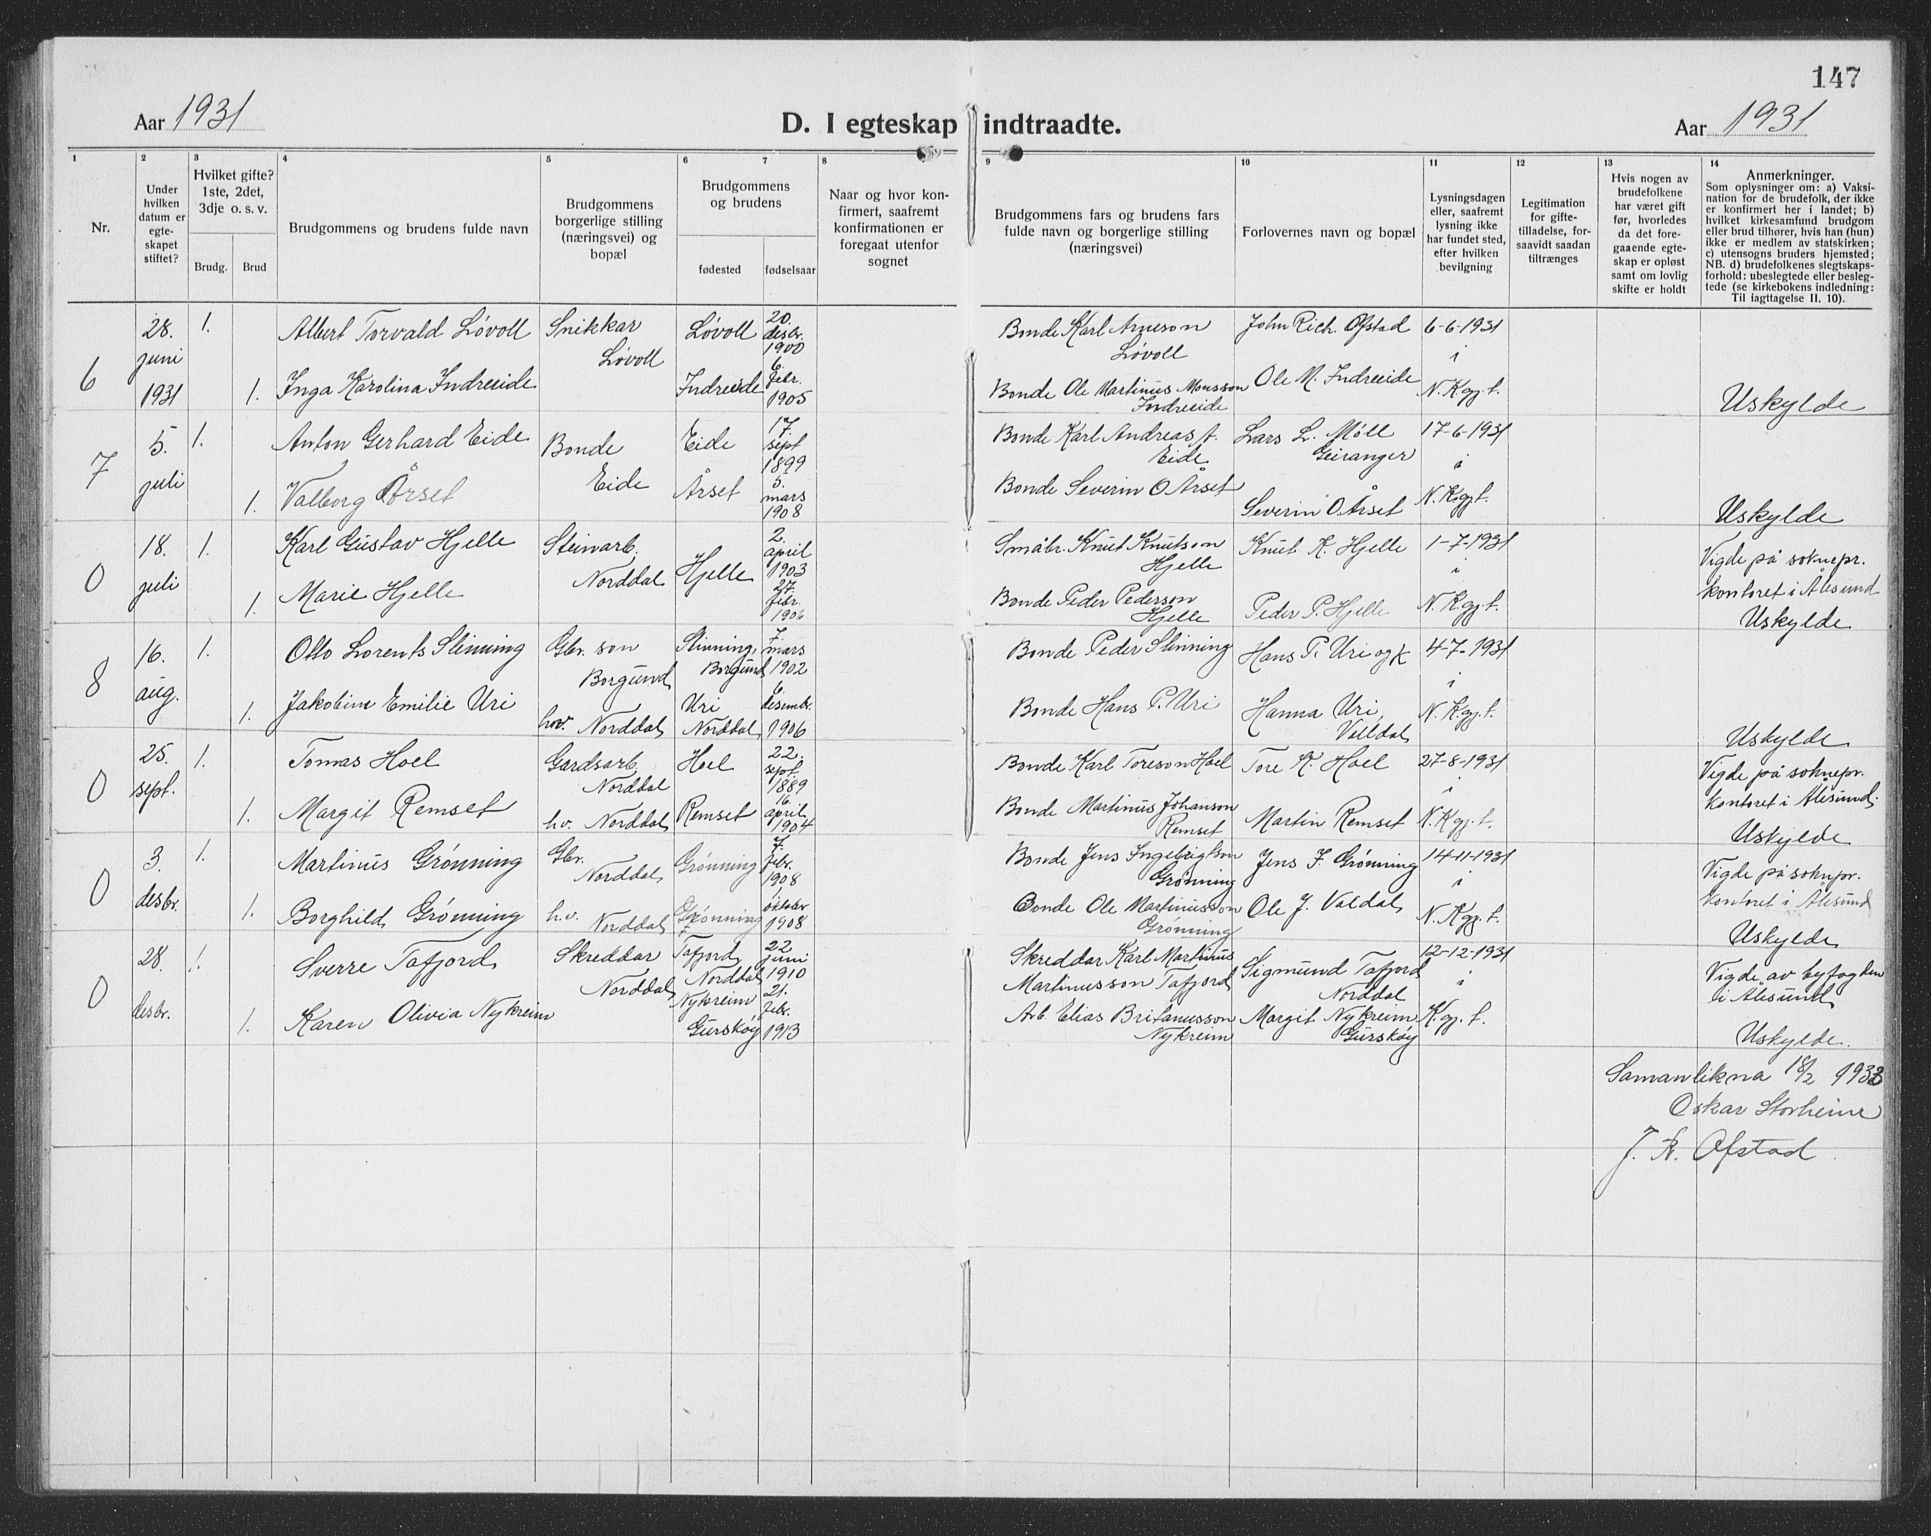 147
Aar 1931
D. I egteskap indtraadte.
Aar 1931
1
2
3
4
5
6
7
8
9
10
11
12
13
14
Nr.
Under
hvilken
datum er
egte-
skapet
stiftet?
Hvilket gifte?
1ste, 2det,
3dje o. s. v.
Brudg.
Brud
Brudgommens og brudens fulde navn
Brudgommens
borgerlige stilling
(næringsvei) og
bopæl
Brudgommens
og brudens
fødested
fødselsaar
Naar og hvor kon-
firmert, saafremt
konfirmationen er
foregaat utenfor
sognet
Brudgommens fars og brudens fars
fulde navn og borgerlige stilling
(næringsvei)
Forlovernes navn og bopæl
Lysningsdagen
eller, saafremt
lysning ikke
har fundet sted,
efter hvilken
bevilgning
Legitimation
for gifte-
tilladelse, for-
saavidt saadan
tiltrænges
Hvis nogen av
brudefolkene
har været gift
før, hvorledes
da det fore-
gaaende egte-
skap er opløst
samt om lovlig
skifte er holdt
Anmerkninger.
Som oplysninger om: a) Vaksi-
nation for de brudefolk, der ikke
er konfirmert her i landet; b)
hvilket kirkesamfund brudgom
eller brud tilhører, hvis han (hun)
ikke er medlem av statskirken;
c) utensogns bruders hjemsted;
NB. d) brudefolkenes slegtskaps-
forhold: ubeslegtede eller besleg-
tede (se kirkebokens indledning:
Til iagttagelse II. 10).
6
28.
juni
1931
1.
1.
Albert Torvald Løvoll
Inga Karolina Indreeide
Snikkar
Løvoll
Løvoll
Indreeide
20.
desbr.
1900
6.
febr.
1905
Bonde Karl Arneson
Løvoll
Bonde Ole Martinus Monsson
Indreeide
John Rich. Ofstad
Ole M. Indreeide
6-6-1931
i
N. Kgj. f.
Uskylde
7
5.
juli
1.
1.
Anton Gerhard Eide
Valborg Årset
Bonde
Eide
Eide
Årset
17.
sept
1899
5.
mars
1908
Bonde Karl Andreas A.
Eide
Bonde Severin O Årset
Lars L. Møll
Geiranger
Severin O Årset
17-6-1931
i
N. Kgj. f.
Uskylde
0
18.
juli
1.
1.
Karl Gustav Hjelle
Marie Hjelle
Steinarb.
Norddal
Hjelle
2.
april
1903
27.
febr.
1906
Småbr. Knut Knutson
Hjelle
Bonde Peder Pederson
Hjelle
Knut K. Hjelle
Peder P. Hjelle
1-7-1931
i
N. Kgj. f.
Vigde på soknepr.
kontoret i Ålesund
Uskylde
8
16.
aug.
1.
1.
Otto Lorents Slinning
Jakobine Emilie Uri
Gbr. son
Borgund
hv. Norddal
Slinning,
Borgund
Uri
Norddal
7.
mars
1902
6.
desembr.
1906
Bonde Peder Slinning
Bonde Hans P. Uri
Hans P. Uri og k
Hanna Uri,
Valldal
4-7-1931
i
N. Kgj. f.
Uskylde
0
25.
sept.
1.
1.
Tomas Hoel
Margit Remset
Gardsarb.
Norddal
hv. Norddal
Hoel
Remset
22.
sept.
1889
16.
april
1904
Bonde Karl Toreson Hoel
Bonde Martinus Johanson
Remset
Tore K. Hoel
Martin Remset
27-8-1931
i
N. Kgj. f.
Vigde på soknepr.
kontoret i Ålesund.
Uskylde
0
3.
desbr.
1.
1.
Martinus Grønning
Borghild Grønning
Gbr.
Norddal
hv.
Norddal
Grønning
Grønning
7.
febr.
1908
7
oktober
1908
Bonde Jens Ingebrigtson
Grønning
Bonde Ole Martinusson
Grønning
Jens I. Grønning
Ole J. Valdal
14-11-1931
i
N. Kgj. f.
Vigde på soknpr.
kontoret i Ålesund
Uskylde
0
28.
desbr.
1.
1.
Sverre Tafjord
Karen Olivia Nykreim
Skreddar
Norddal
Tafjord
Norddal
Nykreim
Gurskøy
22
juni
1910
21.
febr.
1913
Skreddar Karl Martinus
Martinusson Tafjord
Arb. Elias Britanusson
Nykreim
Sigmund Tafjord
Norddal
Margit Nykreim
Gurskøy
12-12-1931
i
K. gj. f.
Vigde av byfogden
i Ålesund
Uskylde.
Samanlikna 18/2 1933
Oskar Storheim
J. R. Ofstad